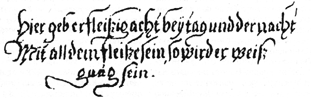 Hier geb er fleißig acht bey tag und der nacht
Mit all dem fleiße sein, so wird er weiß
gnug sein.